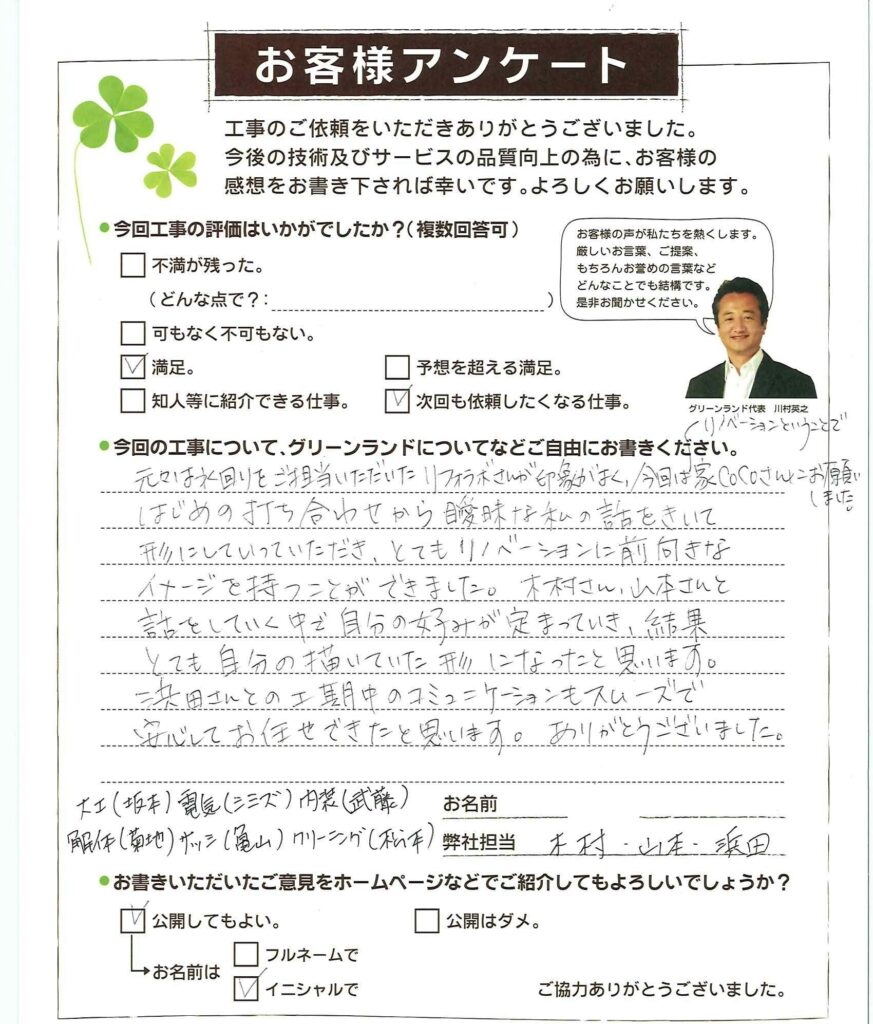 お客様アンケート
工事のご依頼をいただきありがとうございました。
今後の技術及びサービスの品質向上の為に、お客様の
感想をお書き下されば幸いです。よろしくお願いします。
●今回工事の評価はいかがでしたか？（複数回答可）
不満が残った。
（どんな点で？： ）
可もなく不可もない。
満足。
予想を超える満足。
知人等に紹介できる仕事。
次回も依頼したくなる仕事。
お客様の声が私たちを熱くします。
厳しいお言葉、ご提案、
もちろんお誉めの言葉など
どんなことでも結構です。
是非お聞かせください。
グリーンランド代表　川村英之
●今回の工事について、グリーンランドについてなどご自由にお書きください。
リノベーションということで
元々は水回りをご担当いただいたリフォラボさんが印象がよく、今回は家COCOさんにお願い
しました。
はじめの打ち合わせから曖昧な私の話をきいて
形にしていっていただき、とてもリノベーションに前向きな
イメージを持つことができました。木村さん、山本さんと
話をしていく中で自分の好みが定まっていき、結果
とても自分の描いていた形になったと思います。
浜田さんとの工期中のコミュニケーションもスムーズで
安心してお任せできたと思います。ありがとうございました。
大工(坂本) 電気(シミズ) 内装(武藤)
解体(菊地) サッシ(亀山) クリーニング(松本)
お名前
弊社担当　木村・山本・浜田
●お書きいただいたご意見をホームページなどでご紹介してもよろしいでしょうか？
公開してもよい。
公開はダメ。
お名前は
フルネームで
イニシャルで
ご協力ありがとうございました。